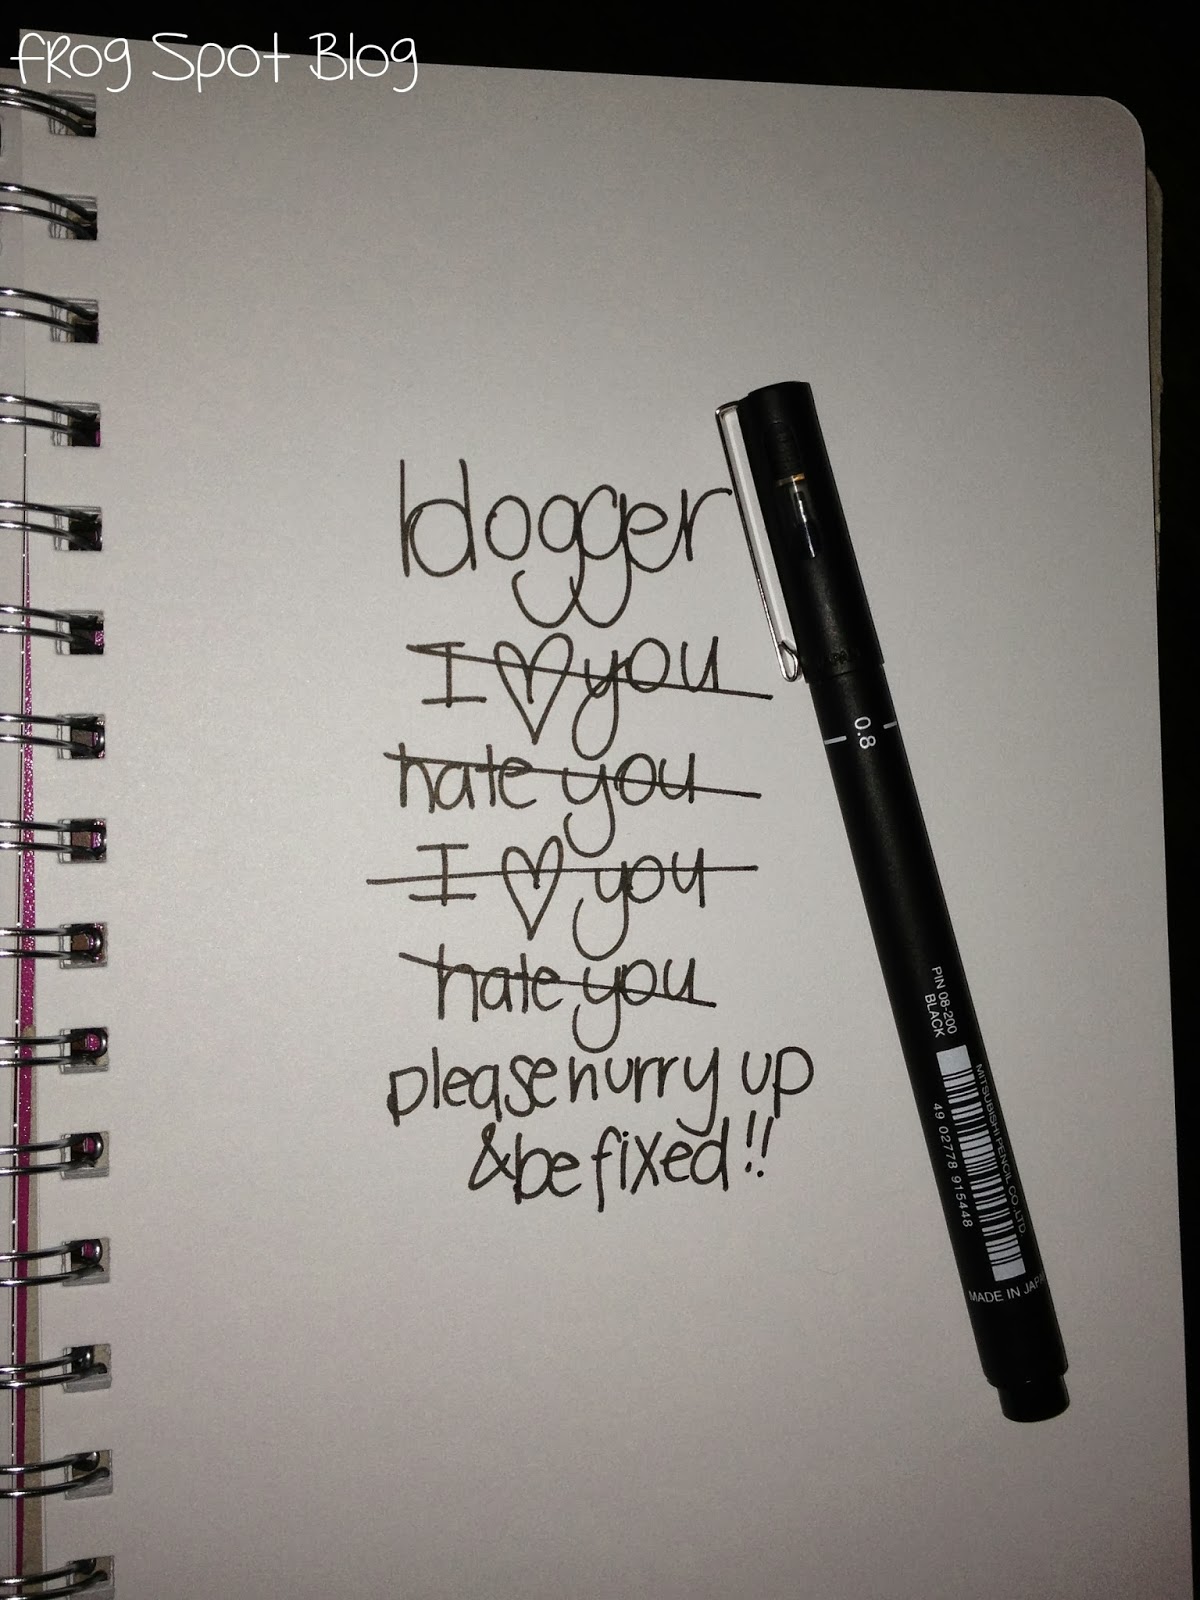 fRog Spot Blog
blogger
I ♡ you
hate you
I ♡ you
hate you
please hurry up
& be fixed!!
0.8
PIN 08-200
BLACK
MITSUBISHI PENCIL CO.,LTD.
49 02778 915448
MADE IN JAPAN